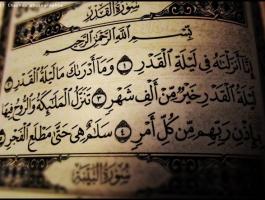 سُورَةُ الْقَدْرِ
بِسْمِ اللَّهِ الرَّحْمَٰنِ الرَّحِيمِ
إِنَّا أَنزَلْنَاهُ فِي لَيْلَةِ الْقَدْرِ ١ وَمَا أَدْرَاكَ مَا لَيْلَةُ الْقَدْرِ ٢
لَيْلَةُ الْقَدْرِ خَيْرٌ مِّنْ أَلْفِ شَهْرٍ ٣ تَنَزَّلُ الْمَلَائِكَةُ وَالرُّوحُ فِيهَا
بِإِذْنِ رَبِّهِم مِّن كُلِّ أَمْرٍ ٤ سَلَامٌ هِيَ حَتَّىٰ مَطْلَعِ الْفَجْرِ
سُورَةُ الْبَيِّنَةِ